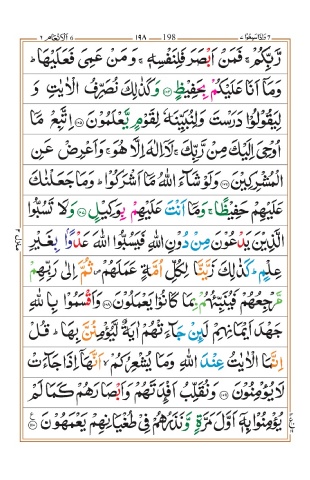 وَاِذَا سَمِعُوْا ٧ 198 ١٩٨ اَلْاَنْعَام ٦
رَّبِّكُمْ ۚ فَمَنْ اَبْصَرَ فَلِنَفْسِهٖ ۚ وَمَنْ عَمِىَ فَعَلَيْهَا ؕ
وَمَاۤ اَنَا عَلَيْكُمْ بِحَفِيْظٍ ﴿۱۰۴﴾ وَكَذٰلِكَ نُصَرِّفُ الْاٰيٰتِ وَ
لِيَقُوْلُوْا دَرَسْتَ وَلِنُبَيِّنَهٗ لِقَوْمٍ يَّعْلَمُوْنَ ﴿۱۰۵﴾ اِتَّبِعْ مَاۤ
اُوْحِىَ اِلَيْكَ مِنْ رَّبِّكَ ۚ لَاۤ اِلٰهَ اِلَّا هُوَ ۚ وَاَعْرِضْ عَنِ
الْمُشْرِكِيْنَ ﴿۱۰۶﴾ وَلَوْ شَآءَ اللّٰهُ مَاۤ اَشْرَكُوْا ؕ وَمَا جَعَلْنٰكَ
عَلَيْهِمْ حَفِيْظًا ۚ وَمَاۤ اَنْتَ عَلَيْهِمْ بِوَكِيْلٍ ﴿۱۰۷﴾ وَلَا تَسُبُّوا
الَّذِيْنَ يَدْعُوْنَ مِنْ دُوْنِ اللّٰهِ فَيَسُبُّوا اللّٰهَ عَدْوًۢا بِغَيْرِ
عِلْمٍ ؕ كَذٰلِكَ زَيَّنَّا لِكُلِّ اُمَّةٍ عَمَلَهُمْ ۪ ثُمَّ اِلٰى رَبِّهِمْ
مَّرْجِعُهُمْ فَيُنَبِّئُهُمْ بِمَا كَانُوْا يَعْمَلُوْنَ ﴿۱۰۸﴾ وَاَقْسَمُوْا بِاللّٰهِ
جَهْدَ اَيْمَانِهِمْ لَئِنْ جَآءَتْهُمْ اٰيَةٌ لَّيُؤْمِنُنَّ بِهَا ؕ قُلْ
اِنَّمَا الْاٰيٰتُ عِنْدَ اللّٰهِ وَمَا يُشْعِرُكُمْ ۙ اَنَّهَاۤ اِذَا جَآءَتْ
لَا يُؤْمِنُوْنَ ﴿۱۰۹﴾ وَنُقَلِّبُ اَفْئِدَتَهُمْ وَاَبْصَارَهُمْ كَمَا لَمْ
يُؤْمِنُوْا بِهٖۤ اَوَّلَ مَرَّةٍ وَّنَذَرُهُمْ فِىْ طُغْيَانِهِمْ يَعْمَهُوْنَ ﴿۱۱۰﴾